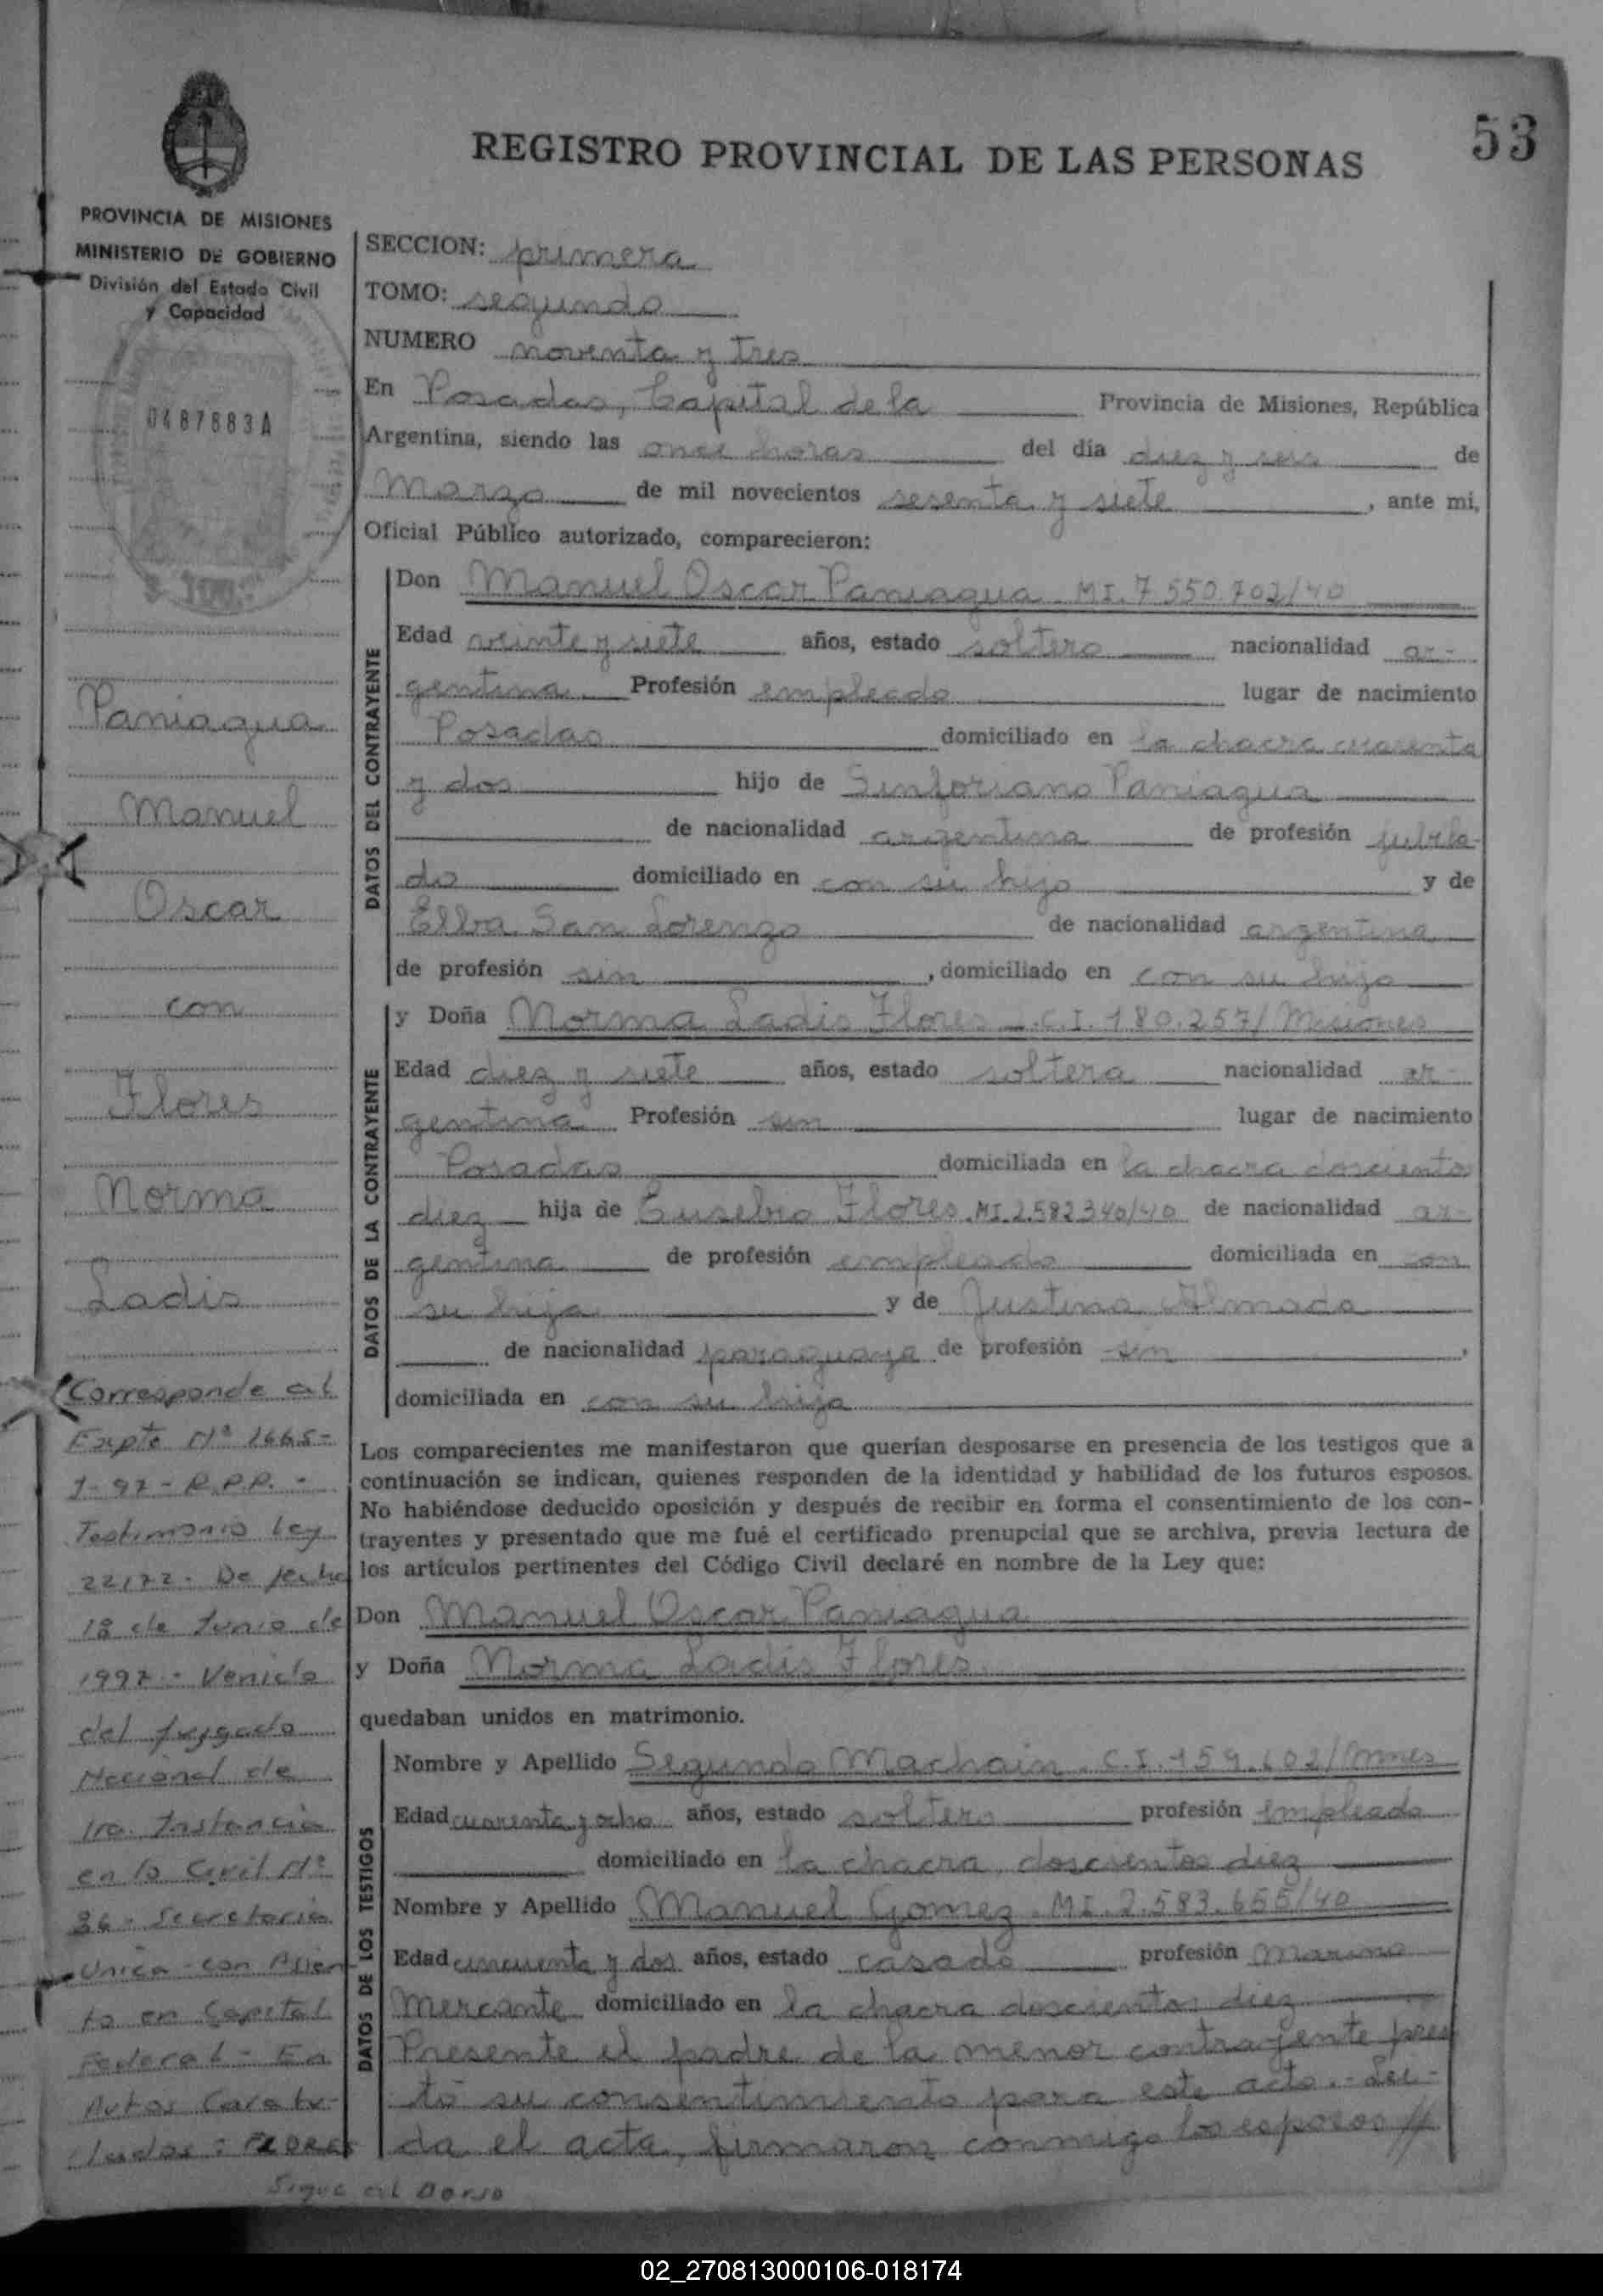 53
REGISTRO PROVINCIAL DE LAS PERSONAS
PROVINCIA DE MISIONES
MINISTERIO DE GOBIERNO
División del Estado Civil
y Capacidad
0487883A
SECCION: primera
TOMO: segundo
NUMERO noventa y tres
En Posadas, Capital de la Provincia de Misiones, República
Argentina, siendo las once horas del día diez y seis de
Marzo de mil novecientos sesenta y siete, ante mi,
Oficial Público autorizado, comparecieron:
DATOS DEL CONTRAYENTE
Don Manuel Oscar Paniagua MI. 7550702/40
Edad veinte y siete años, estado soltero nacionalidad ar-
gentina Profesión empleado lugar de nacimiento
Posadas domiciliado en la chacra cuarenta
y dos hijo de Sinforiano Paniagua
de nacionalidad argentina de profesión jubila-
do domiciliado en con su hijo y de
Elba San Lorenzo de nacionalidad argentina
de profesión sin, domiciliado en con su hijo
DATOS DE LA CONTRAYENTE
y Doña Norma Ladis Flores C.I. 180.257/Misiones
Edad diez y siete años, estado soltera nacionalidad ar-
gentina Profesión sin lugar de nacimiento
Posadas domiciliada en la chacra doscientos
diez hija de Eusebio Flores. MI. 2.582340/40 de nacionalidad ar-
gentina de profesión empleado domiciliada en con
su hija y de Justina Almada
de nacionalidad paraguaya de profesión sin,
domiciliada en con su hija
Los comparecientes me manifestaron que querían desposarse en presencia de los testigos que a
continuación se indican, quienes responden de la identidad y habilidad de los futuros esposos.
No habiéndose deducido oposición y después de recibir en forma el consentimiento de los con-
trayentes y presentado que me fué el certificado prenupcial que se archiva, previa lectura de
los artículos pertinentes del Código Civil declaré en nombre de la Ley que:
Don Manuel Oscar Paniagua
y Doña Norma Ladis Flores
quedaban unidos en matrimonio.
DATOS DE LOS TESTIGOS
Nombre y Apellido Segundo Machain. C.I. 159.602/Mnes
Edad cuarenta y ocho años, estado soltero profesión empleado
domiciliado en la chacra doscientos diez
Nombre y Apellido Manuel Gomez. MI. 2.583.655/40
Edad cincuenta y dos años, estado casado profesión marino
Mercante domiciliado en la chacra doscientos diez
Presente el padre de la menor contrayente pres
tó su consentimiento para este acto.- Lei-
da el acta, firmaron conmigo los esposos //
Paniagua
Manuel
Oscar
con
Flores
Norma
Ladis
Corresponde al
Expte Nº 1665-
J-97-R.P.P.-
Testimonio Ley
22172. De fecha
18 de Junio de
1997- Venido
del Juzgado
Nacional de
1ra. Instancia
en lo Civil Nº
36- Secretaria
Unica-con Asien
to en Capital
Federal- En
Autos Caratu-
lados: FLORES
Sigue al Dorso
02_270813000106-018174